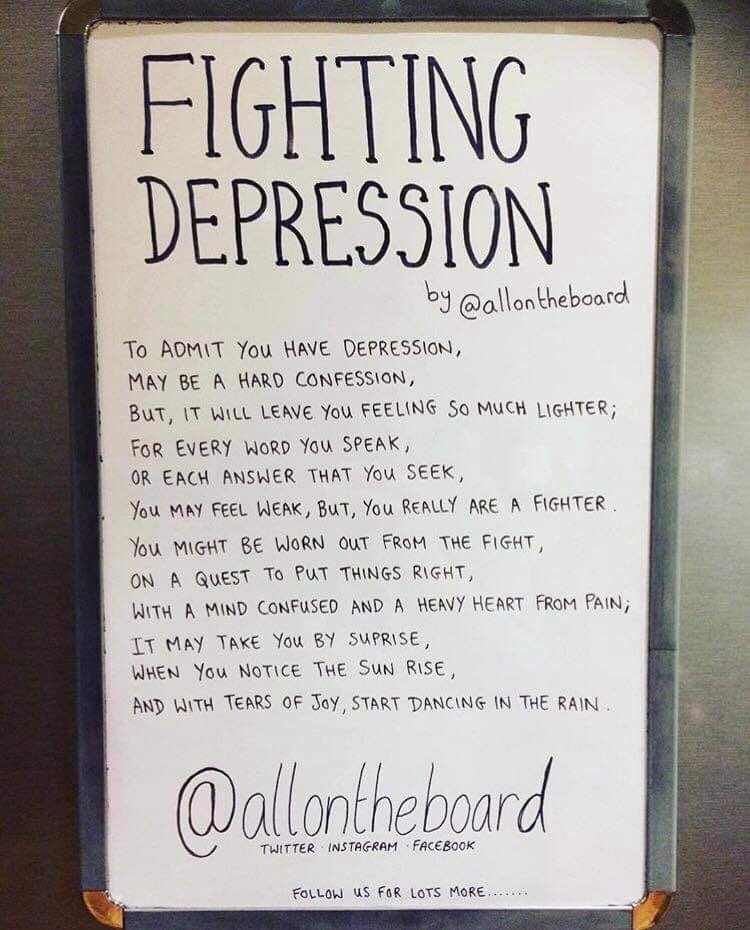 FIGHTING
DEPRESSION
by @allontheboard
TO ADMIT YOU HAVE DEPRESSION,
MAY BE A HARD CONFESSION,
BUT, IT WILL LEAVE YOU FEELING SO MUCH LIGHTER;
FOR EVERY WORD YOU SPEAK,
OR EACH ANSWER THAT YOU SEEK,
YOU MAY FEEL WEAK, BUT, YOU REALLY ARE A FIGHTER.
YOU MIGHT BE WORN OUT FROM THE FIGHT,
ON A QUEST TO PUT THINGS RIGHT,
WITH A MIND CONFUSED AND A HEAVY HEART FROM PAIN;
IT MAY TAKE YOU BY SUPRISE,
WHEN YOU NOTICE THE SUN RISE,
AND WITH TEARS OF JOY, START DANCING IN THE RAIN.
@allontheboard
TWITTER · INSTAGRAM · FACEBOOK
FOLLOW US FOR LOTS MORE.......